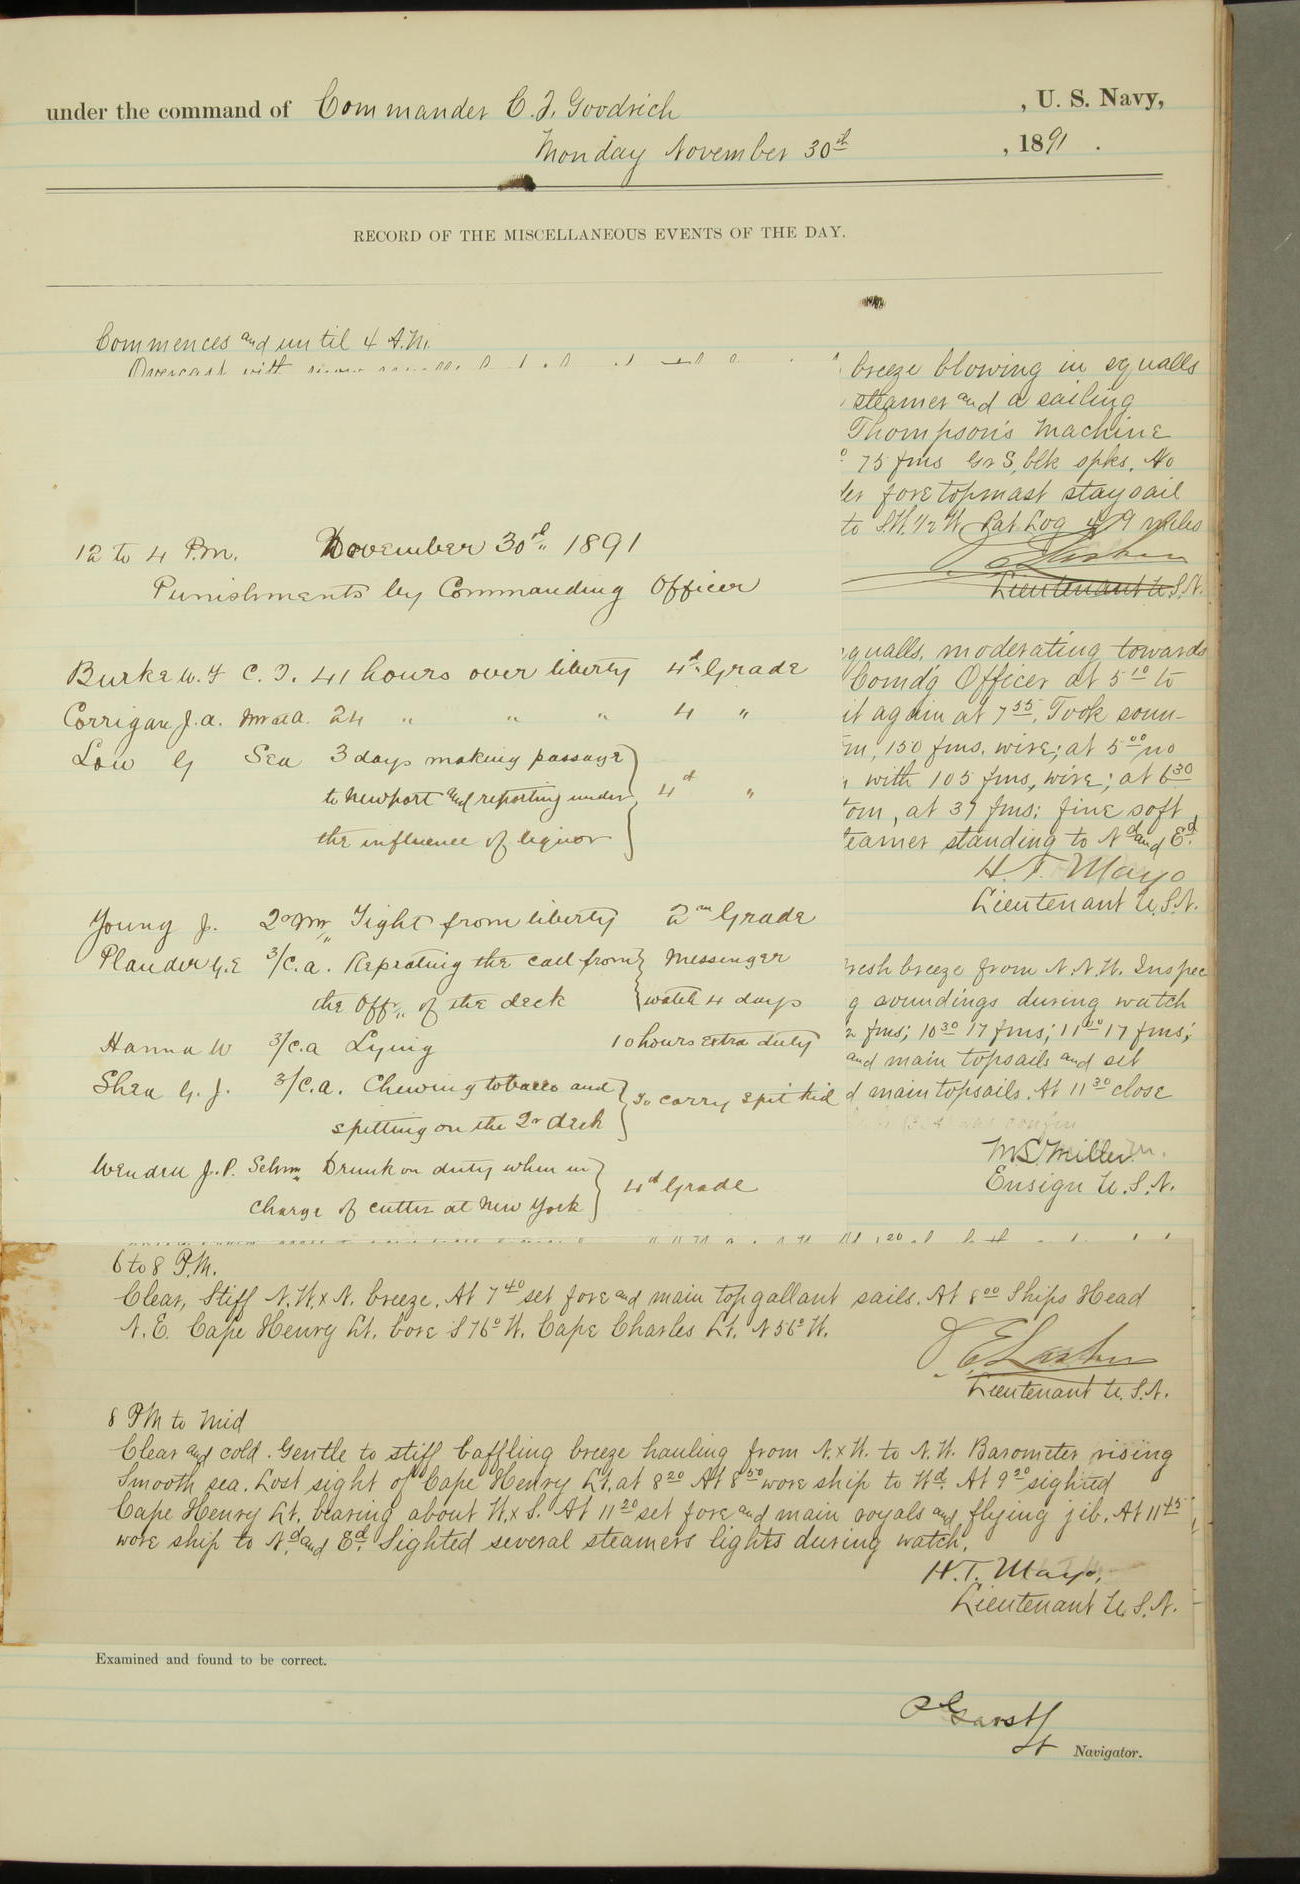 under the command of Commander C. F. Goodrich , U. S. Navy,
Monday November 30th , 1891 .
RECORD OF THE MISCELLANEOUS EVENTS OF THE DAY.
Commences and until 4 A.M.
Overcast with
breeze blowing in squalls
steamer and a sailing
Thompson's Machine
75 fms Gr S, blk spks. No
fore topmast staysail
to S.W. 1/2 W. Pat Log 49 miles
Lieutenant U.S.N.
12 to 4 P.m. November 30th 1891
Punishments by Commanding Officer
Burke W. F C. F. 41 hours over liberty 4th Grade
Corrigan J. A. Matta. 24 " " " 4 "
Low G Sea 3 days making passage
to Newport and reporting under 4th "
the influence of liquor
Young J. 2d Mr Tight from liberty 2nd Grade
Plauder G. E 3/C.a. Repeating the call from Messenger
the Offr. of the deck watch 4 days
Hanna W 3/C.a Lying 10 hours extra duty
Shea G. J. 3/C.a. Chewing tobacco and To carry spit kid
spitting on the 2d deck
J. P. Drunk on duty when in
charge of cutter at New York 4th Grade
squalls, moderating towards
Comd'g Officer at 5 10 to
it again at 7 55. Took soun-
150 fms. wire; at 5 00 no
with 105 fms, wire; at 6 30
at 37 fms: fine soft
steamer standing to Nd and Ed.
H. T. Mayo
Lieutenant U.S.N.
fresh breeze from N.N.W. Inspec
g soundings during watch
fms; 10 30 17 fms; 11 00 17 fms;
and main topsails and set
d main topsails. At 11 30 close
M S Miller
Ensign U.S.N.
6 to 8 P.M.
Clear, Stiff N.W. x N. breeze. At 7 40 set fore and main topgallant sails. At 8 00 Ships Head
N.E. Cape Henry Lt. bore S 76° W. Cape Charles Lt. N 56° W.
Lieutenant U.S.N.
8 PM to Mid
Clear and cold. Gentle to stiff baffling breeze hauling from N. x W. to N.W. Barometer rising
Smooth sea. Lost sight of Cape Henry Lt. at 8 20 At 8 50 wore ship to Wd. At 9 20 sighted
Cape Henry Lt. bearing about W. x S. At 11 20 set fore and main royals and flying jib. At 11 45
wore ship to Nd. and Ed. Sighted several steamers lights during watch.
H. T. Mayo,
Lieutenant U.S.N.
Examined and found to be correct.
Garst
Lt Navigator.